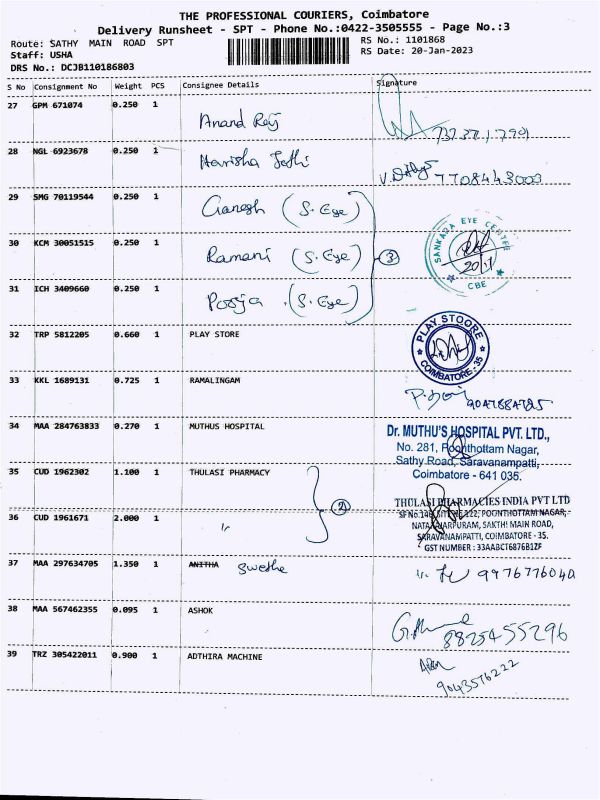 THE PROFESSIONAL COURIERS, Coimbatore
Delivery Runsheet - SPT - Phone No.:0422-3505555 - Page No.:3
Route: SATHY MAIN ROAD SPT RS No.: 1101868
Staff: USHA RS Date: 20-Jan-2023
DRS No.: DCJB110186803
S No Consignment No Weight PCS Consignee Details Signature
27 GPM 671074 0.250 1 Anand Raj
28 NGL 6923678 0.250 1 Harisha Jothi 7708443003
29 SMG 70119544 0.250 1 Ganesh (S. Eye)
30 KCM 30051515 0.250 1 Ramani (S. Eye) 3 SANKARA EYE CENTRE CBE
31 ICH 3409660 0.250 1 Pooja (S. Eye)
32 TRP 5812205 0.660 1 PLAY STORE PLAY STOORE COIMBATORE - 35
33 KKL 1689131 0.725 1 RAMALINGAM
34 MAA 284763833 0.270 1 MUTHUS HOSPITAL Dr. MUTHU'S HOSPITAL PVT. LTD.,
No. 281, Poonthottam Nagar,
Sathy Road, Saravanampatti,
Coimbatore - 641 035.
35 CUD 1962302 1.100 1 THULASI PHARMACY 2 THULASI PHARMACIES INDIA PVT LTD
POONTHOTTAM NAGAR,
36 CUD 1961671 2.000 1 " NATARAJARPURAM, SAKTHI MAIN ROAD,
SARAVANAMPATTI, COIMBATORE - 35.
GST NUMBER : 33AABCT6876B1ZF
37 MAA 297634705 1.350 1 ANITHA Swetha 9976776040
38 MAA 567462355 0.095 1 ASHOK 8825455296
39 TRZ 305422011 0.900 1 ADTHIRA MACHINE 9043576222